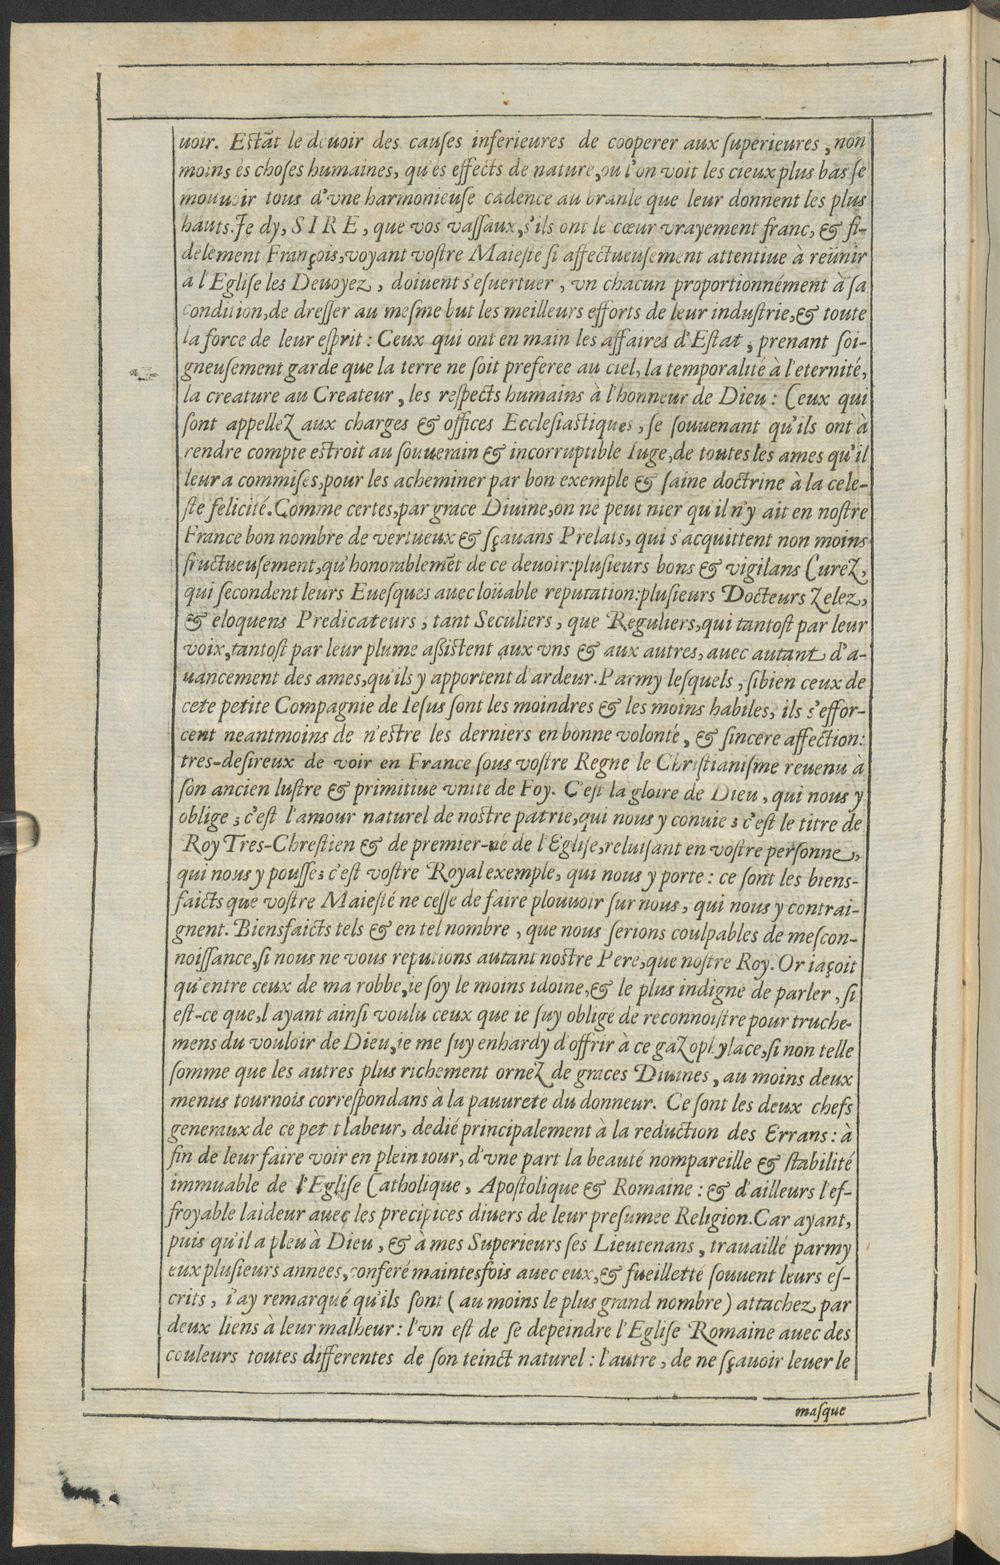 uoir. Estãt le deuoir des causes inferieures de cooperer aux superieures, non
moins ès choses humaines, qu'es effects de nature, ou l'on voit les cieux plus bas se
mouuoir tous d'vne harmonieuse cadence au branle que leur donnent les plus
hauts. Je dy, SIRE, que vos vassaux, s'ils ont le cœur vrayement franc, & fi-
delement François, voyant vostre Maiesté si affectueusement attentiue à reünir
a l'Eglise les Deuoyez, doiuent s'esuertuer, vn chacun proportionnément à sa
condition, de dresser au mesme but les meilleurs efforts de leur industrie, & toute
la force de leur esprit: Ceux qui ont en main les affaires d'Estat, prenant soi-
gneusement garde que la terre ne soit preferee au ciel, la temporalité à l'eternité,
la creature au Createur, les respects humains à l'honneur de Dieu: Ceux qui
sont appellez aux charges & offices Ecclesiastiques, se souuenant qu'ils ont à
rendre compte estroit au souuerain & incorruptible Iuge, de toutes les ames qu'il
leur a commises, pour les acheminer par bon exemple & saine doctrine à la cele-
ste felicité. Comme certes, par grace Diuine, on ne peut nier qu'il n'y ait en nostre
France bon nombre de vertueux & sçauans Prelats, qui s'acquittent non moins
fructueusement, qu'honorablemẽt de ce deuoir: plusieurs bons & vigilans Curez,
qui secondent leurs Euesques auec loüable reputation: plusieurs Docteurs zelez,
& eloquens Predicateurs, tant Seculiers, que Reguliers, qui tantost par leur
voix, tantost par leur plume assistent aux vns & aux autres, auec autant d'a-
uancement des ames, qu'ils y apportent d'ardeur. Parmy lesquels, si bien ceux de
cete petite Compagnie de Iesus sont les moindres & les moins habiles, ils s'effor-
cent neantmoins de n'estre les derniers en bonne volonté, & sincere affection:
tres-desireux de voir en France sous vostre Regne le Christianisme reuenu à
son ancien lustre & primitiue vnité de Foy. C'est la gloire de Dieu, qui nous y
oblige; c'est l'amour naturel de nostre patrie, qui nous y conuie; c'est le titre de
Roy Tres-Chrestien & de premier-né de l'Eglise, reluisant en vostre personne,
qui nous y pousse; c'est vostre Royal exemple, qui nous y porte: ce sont les biens-
faicts que vostre Maiesté ne cesse de faire plouuoir sur nous, qui nous y contrai-
gnent. Biensfaicts tels & en tel nombre, que nous serions coulpables de mescon-
noissance, si nous ne vous reputions autant nostre Pere, que nostre Roy. Or iaçoit
qu'entre ceux de ma robbe, ie soy le moins idoine, & le plus indigne de parler, si
est-ce que, l'ayant ainsi voulu ceux que ie suy obligé de reconnoistre pour truche-
mens du vouloir de Dieu, ie me suy enhardy d'offrir à ce gazophylace, si non telle
somme que les autres plus richement ornez de graces Diuines, au moins deux
menus tournois correspondans à la pauureté du donneur. Ce sont les deux chefs
generaux de ce petit labeur, dedié principalement à la reduction des Errans: à
fin de leur faire voir en plein iour, d'vne part la beauté nompareille & stabilité
immuable de l'Eglise Catholique, Apostolique & Romaine: & d'ailleurs l'ef-
froyable laideur auec les precipices diuers de leur presumee Religion. Car ayant,
puis qu'il a pleu à Dieu, & à mes Superieurs ses Lieutenans, trauaillé parmy
eux plusieurs annees, conferé maintesfois auec eux, & fueilletté souuent leurs es-
crits, i'ay remarqué qu'ils sont (au moins le plus grand nombre) attachez par
deux liens à leur malheur: l'vn est de se depeindre l'Eglise Romaine auec des
couleurs toutes differentes de son teinct naturel: l'autre, de ne sçauoir leuer le
masque